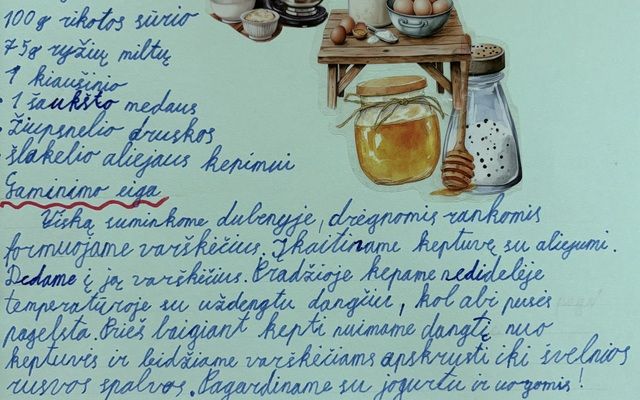 100g rikotos sūrio
75g ryžių miltų
1 kiaušinio
1 šaukšto medaus
Žiupsnelio druskos
šlakelio aliejaus kepimui
Gaminimo eiga
Viską suminkome dubenyje, drėgnomis rankomis
formuojame varškėčius. Įkaitiname keptuvę su aliejumi.
Dedame į ją varškėčius. Pradžioje kepame nedidelėje
temperatūroje su uždengtu dangčiu, kol abi pusės
pagelsta. Prieš baigiant kepti nuimame dangtį nuo
keptuvės ir leidžiame varškėčiams apskrusti iki švelnios
rusvos spalvos. Pagardiname su jogurtu ir uogomis!